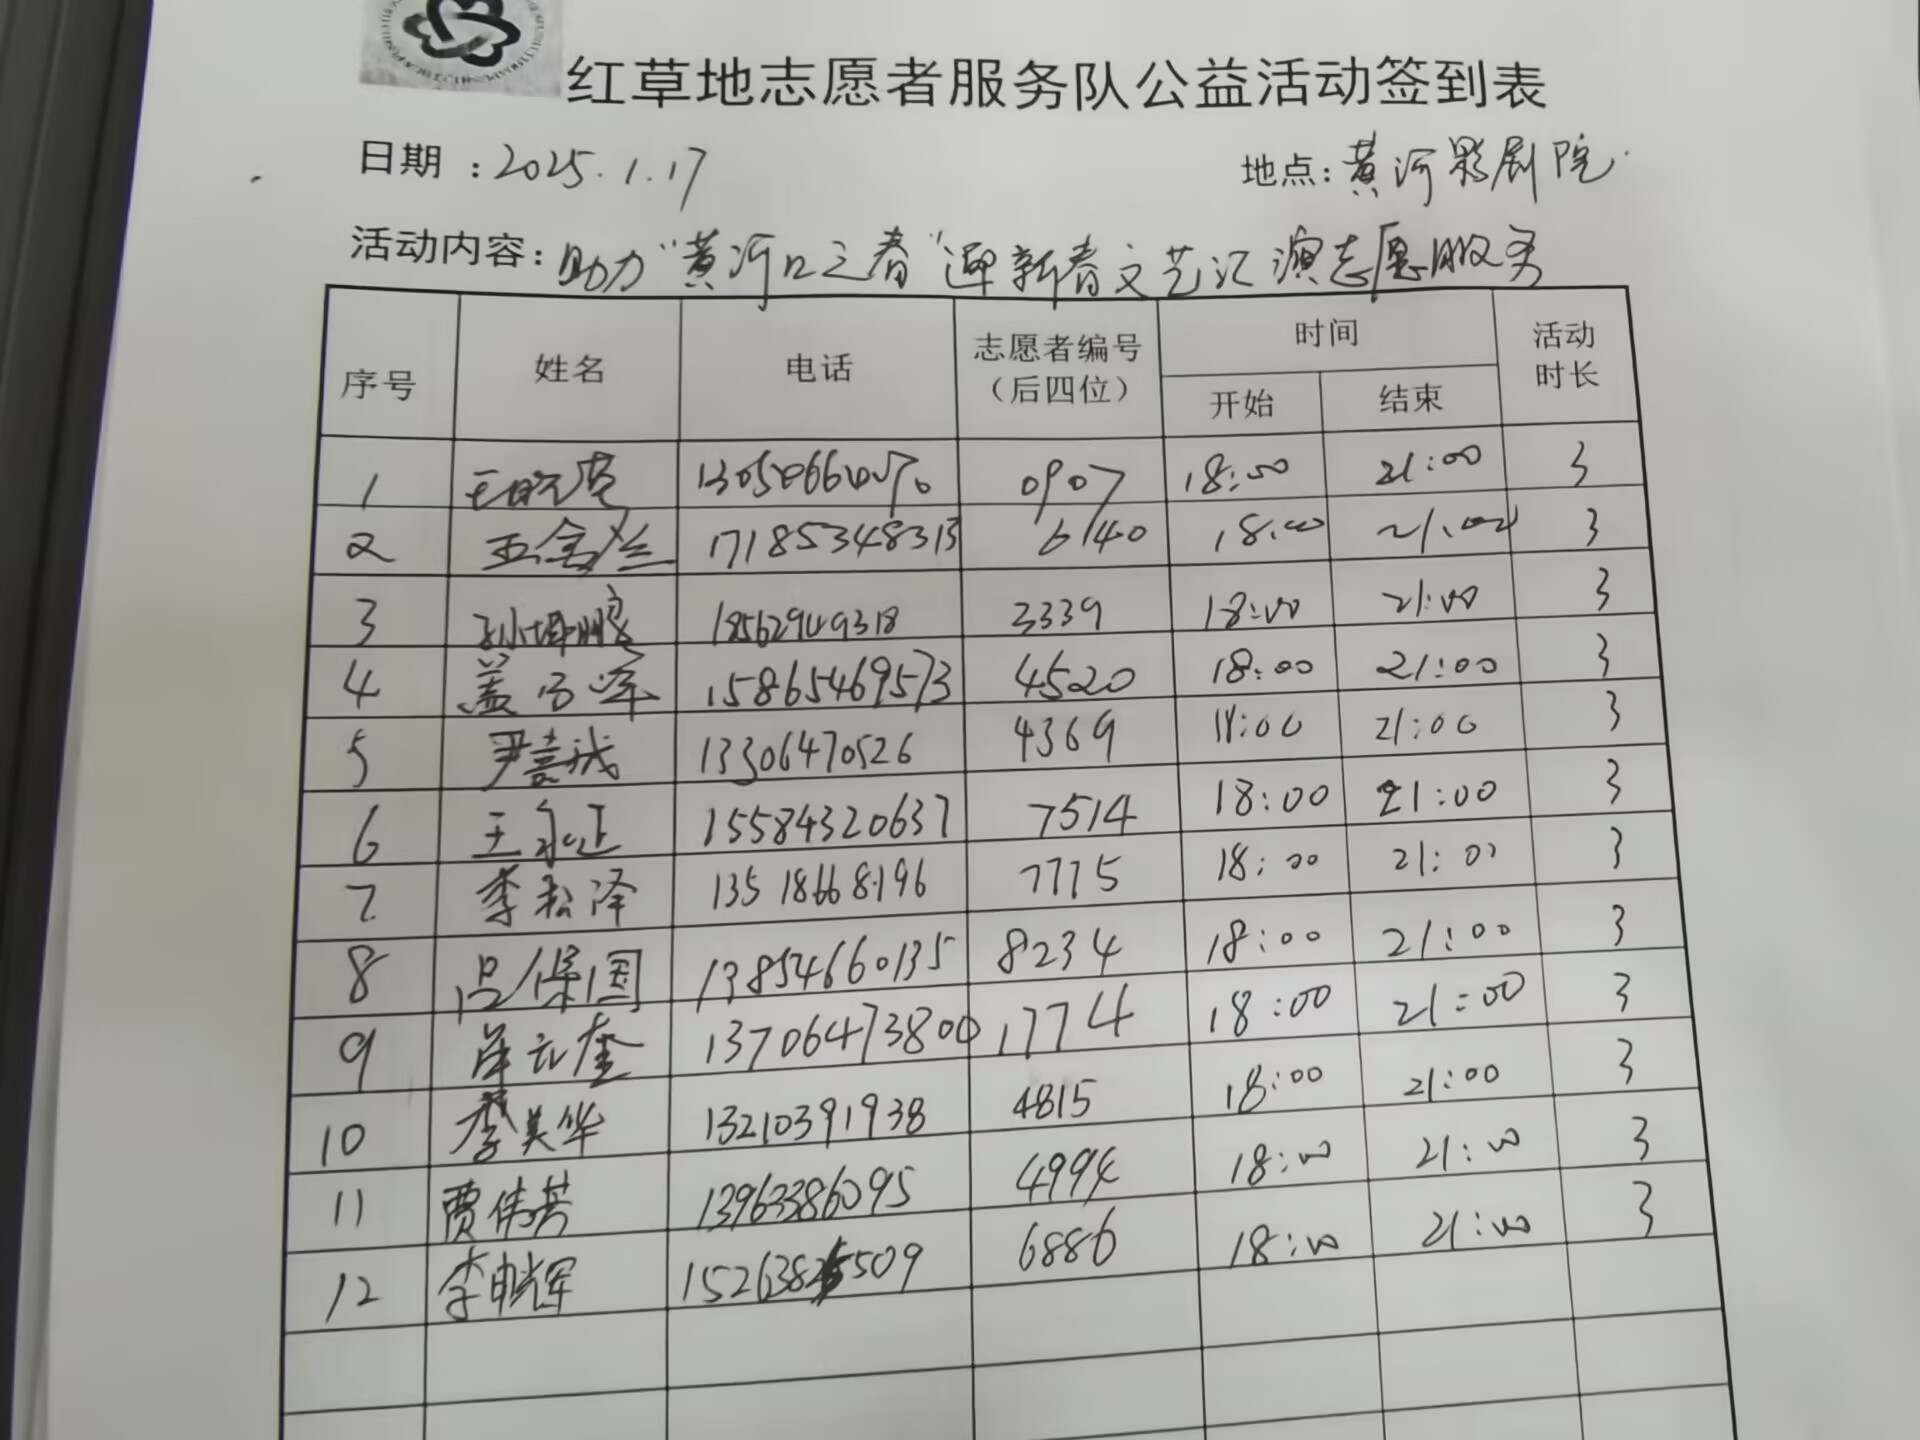 红草地志愿者服务队公益活动签到表
日期：2025.1.17 地点：黄河影剧院
活动内容：助力“黄河口之春”迎新春文艺汇演志愿服务
序号 姓名 电话 志愿者编号（后四位） 时间 开始 结束 活动时长
1 0907 18:00 21:00 3
2 王金兰 17185348313 6140 18:00 21:00 3
3 孙坤鹏 18562949318 3339 18:00 21:00 3
4 盖 15865469573 4520 18:00 21:00 3
5 尹嘉诚 13306470526 4369 18:00 21:00 3
6 王永正 15584320637 7514 18:00 21:00 3
7 李松泽 13518668196 7775 18:00 21:00 3
8 吕保国 13854660135 8234 18:00 21:00 3
9 13706473800 1774 18:00 21:00 3
10 李美华 13210391938 4815 18:00 21:00 3
11 贾伟芳 13963386095 4994 18:00 21:00 3
12 李 6886 18:00 21:00 3